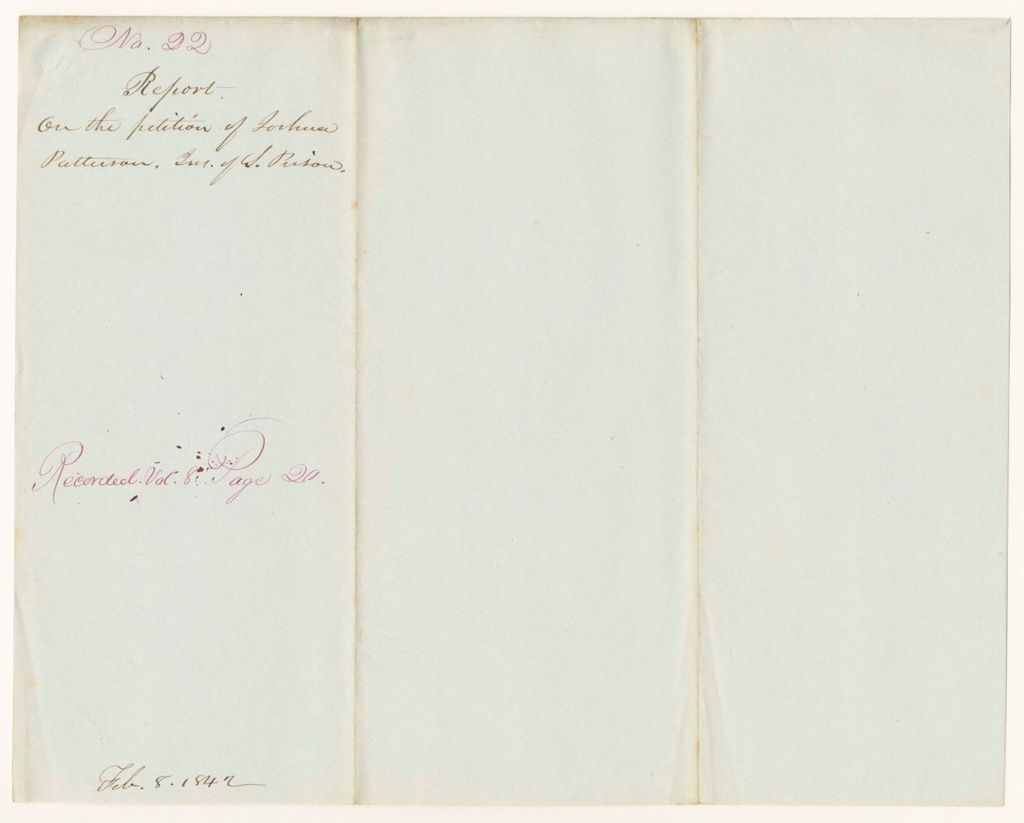 No. 22
Report
On the petition of Joshua
Patterson, Ins. of S. Prison.
Recorded. Vol. 8. Page 20.
Feb. 8. 1842